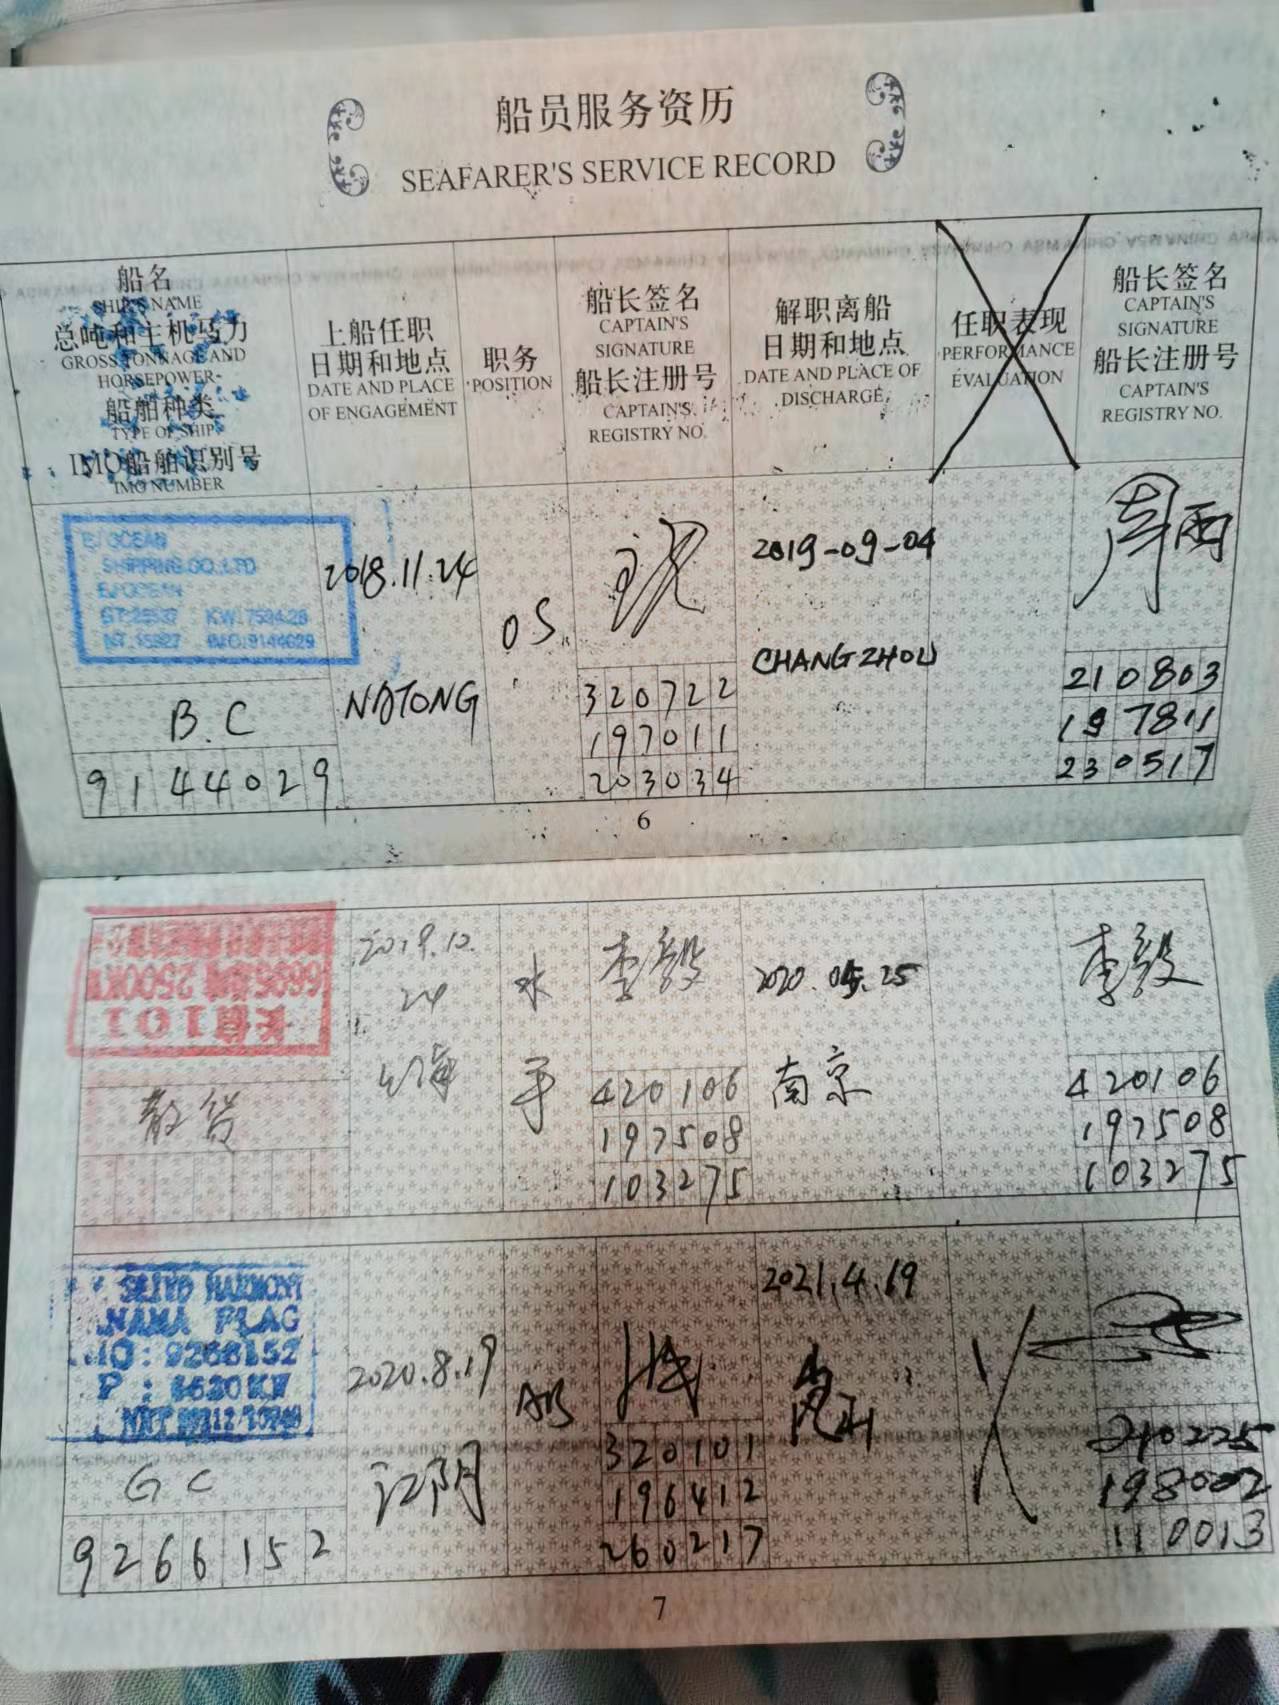 船员服务资历
SEAFARER'S SERVICE RECORD
船名
SHIP'S NAME
总吨和主机马力
GROSS TONNAGE AND
HORSEPOWER
船舶种类
TYPE OF SHIP
IMO船舶识别号
IMO NUMBER
上船任职
日期和地点
DATE AND PLACE
OF ENGAGEMENT
职务
POSITION
船长签名
CAPTAIN'S
SIGNATURE
船长注册号
CAPTAIN'S
REGISTRY NO.
解职离船
日期和地点
DATE AND PLACE OF
DISCHARGE
任职表现
PERFORMANCE
EVALUATION
船长签名
CAPTAIN'S
SIGNATURE
船长注册号
CAPTAIN'S
REGISTRY NO.
OCEAN
SHIPPING CO.,LTD
B.C
9144029
2018.11.24
NATONG
OS
320722
197011
203034
2019-09-04
CHANGZHOU
周雨
210803
197811
230517
6
长信101
散货
2019.12.
24
上海
水
手
李毅
420106
197508
103275
2020.04.25
南京
李毅
420106
197508
103275
HARMONY
NAMA FLAG
9266152
GC
9266152
2020.8.19
江阴
AB
320101
196412
260217
2021.4.19
210225
198002
110013
7